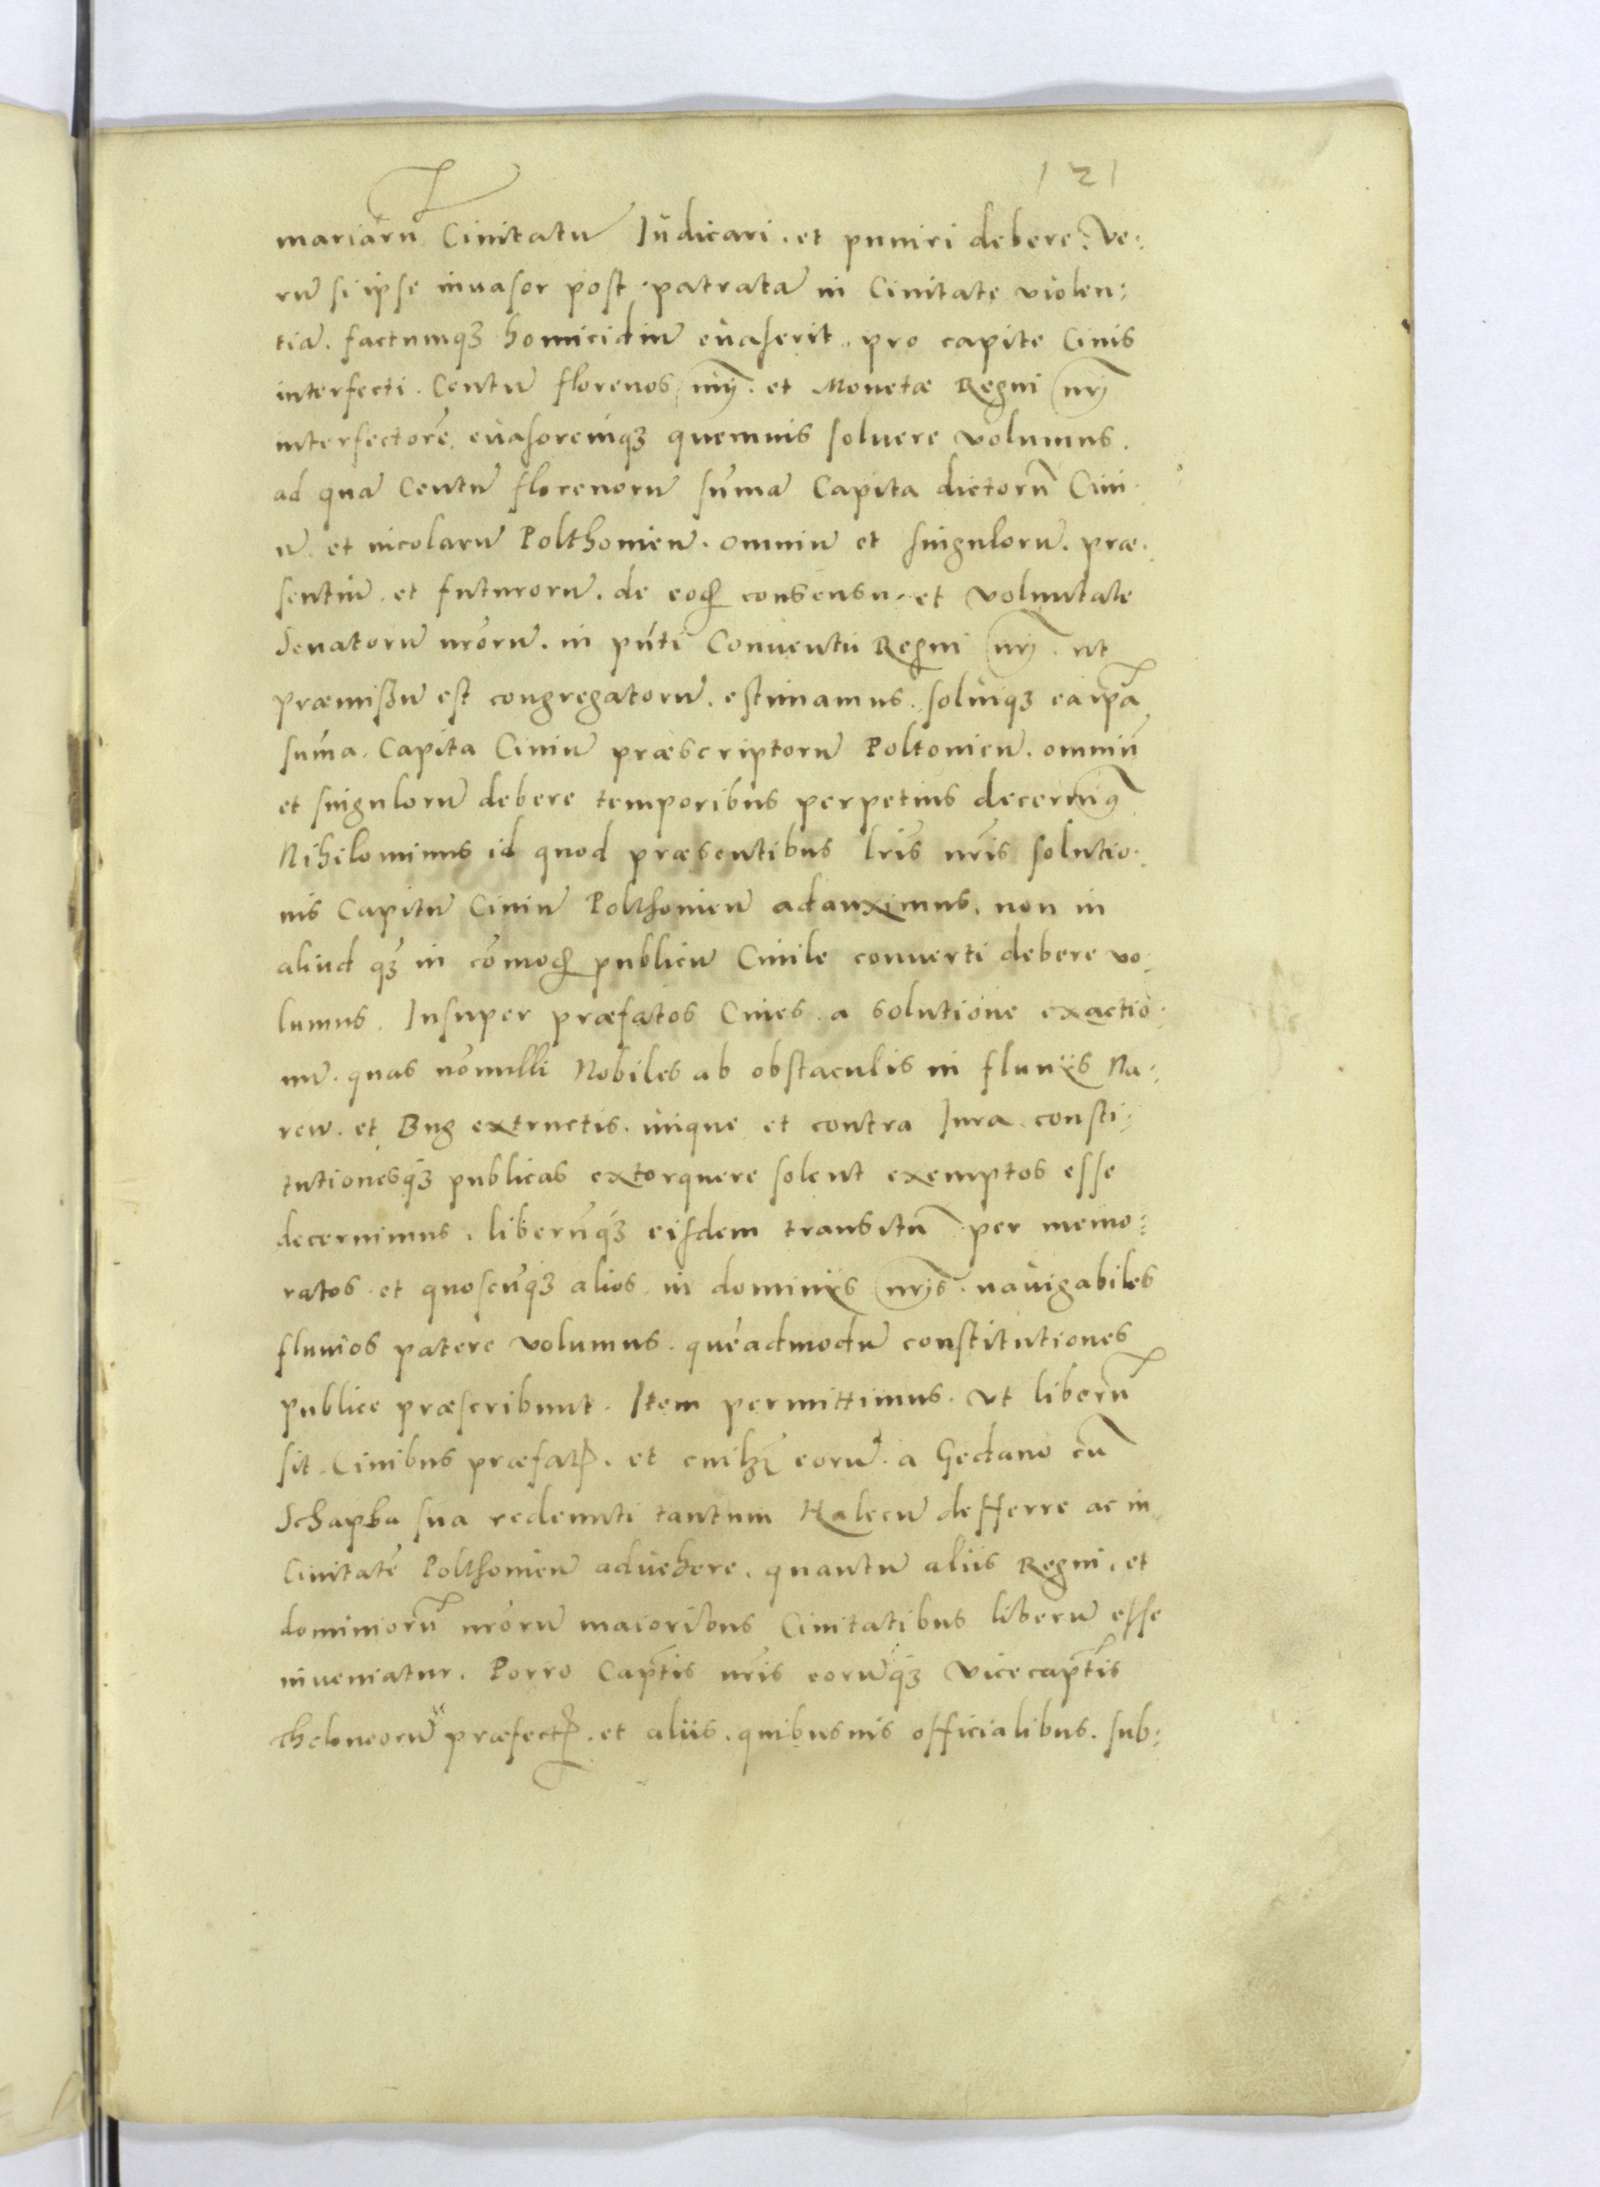 121
mariarū Ciuitatū Iudicari. et puniri debere. Ve:
rū si ipse inuasor post patratā in Ciuitate violen:
tiā. factumq3 homicidiū euaserit. pro capite Ciuis
interfecti. Centū florenos. et Monetæ Regni nrj
interfectorē euasoremq3 quemuis soluere volumus.
ad quā Centū florenorū sūmā Capita dictorū Ciui
ū. et incolarū Polthouieñ. omniū et singulorū. præ:
sentiū. et futurorū. de eod consensu. et voluntate
Senatorū nrorū. in pūti Conuentu Regni nrj. ut
præmissū est congregatorū. estimamus. soluiq3 ea ipā
sūma. Capita Ciuiū præscriptorū Poltouieñ. omniū
et singulorū debere temporibus perpetuis decernim9
Nihilominus id quod præsentibus lris nris solutio:
nis Capitū Ciuiū Polthouieñ adauximus. non in
aliud q3 in cōmod publicū Ciuile conuerti debere vo:
lumus. Insuper præfatos Ciues. a solutione exactio:
nū. quas nōnulli Nobiles ab obstaculis in fluuijs Na:
rew. et Bug extructis. inique et contra Iura. consti:
tutionesq3 publicas extorquere solent exemptos esse
decernimus. liberūq3 eisdem transitū per memo:
ratos et quoscūq3 alios in dominijs nrjs. nauigabiles
fluuios patere volumus. quēadmodū constitutiones
publice præscribunt. Item permittimus. Vt liberū
sit Ciuibus præfat. et cuilz eorū a Gedano cū
Schapha sua redeunti tantum Halecū defferre ac in
Ciuitatē Polthouieñ aduehere. quantū aliis Regni. et
dominiorū nrorū maioribus Ciuitatibus liberū esse
inueniatur. Porro Captis nris eorūq3 Vicecaptis
theloneorū præfect. et aliis. quibusuis officialibus. sub: